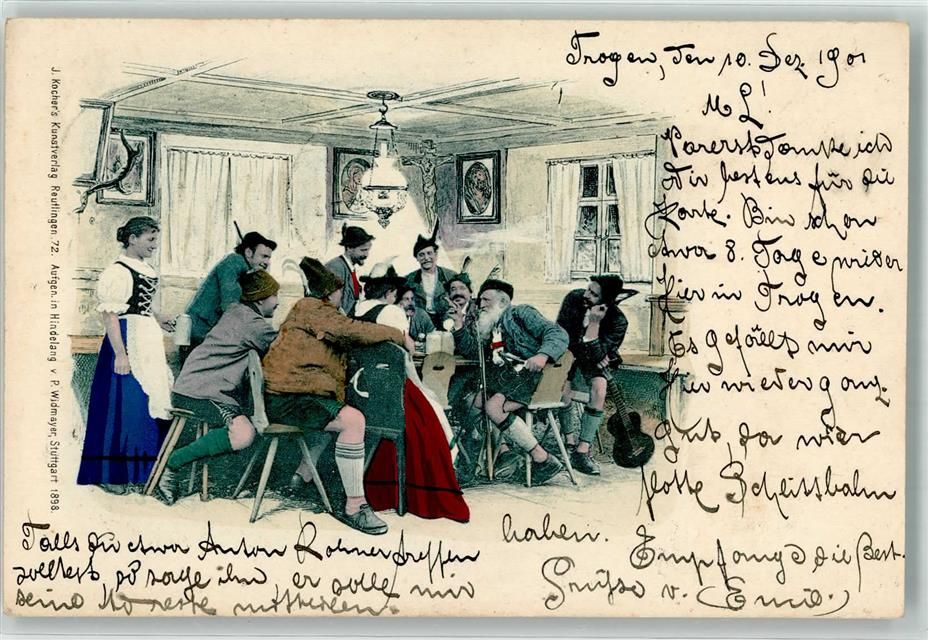 Trogen, den 10. Dez. 1901
M L!
Vorerst danke ich
Dir bestens für die
Karte. Bin schon
etwa 8. Tage wieder
hier in Trogen.
Es gefällt mir
hier wieder ganz
gut, da wier
flotte Schlittbahn
haben.
Empfange die Best-
Grüsse v. (Emil.)
Falls du etwa Anton Rohner treffen
solltest, so sage ihm, er solle mir
seine Adresse mitteilen.
J. Kocher's Kunstverlag Reutlingen. 72. Aufgen. in Hindelang v. P. Widmayer, Stuttgart 1898.